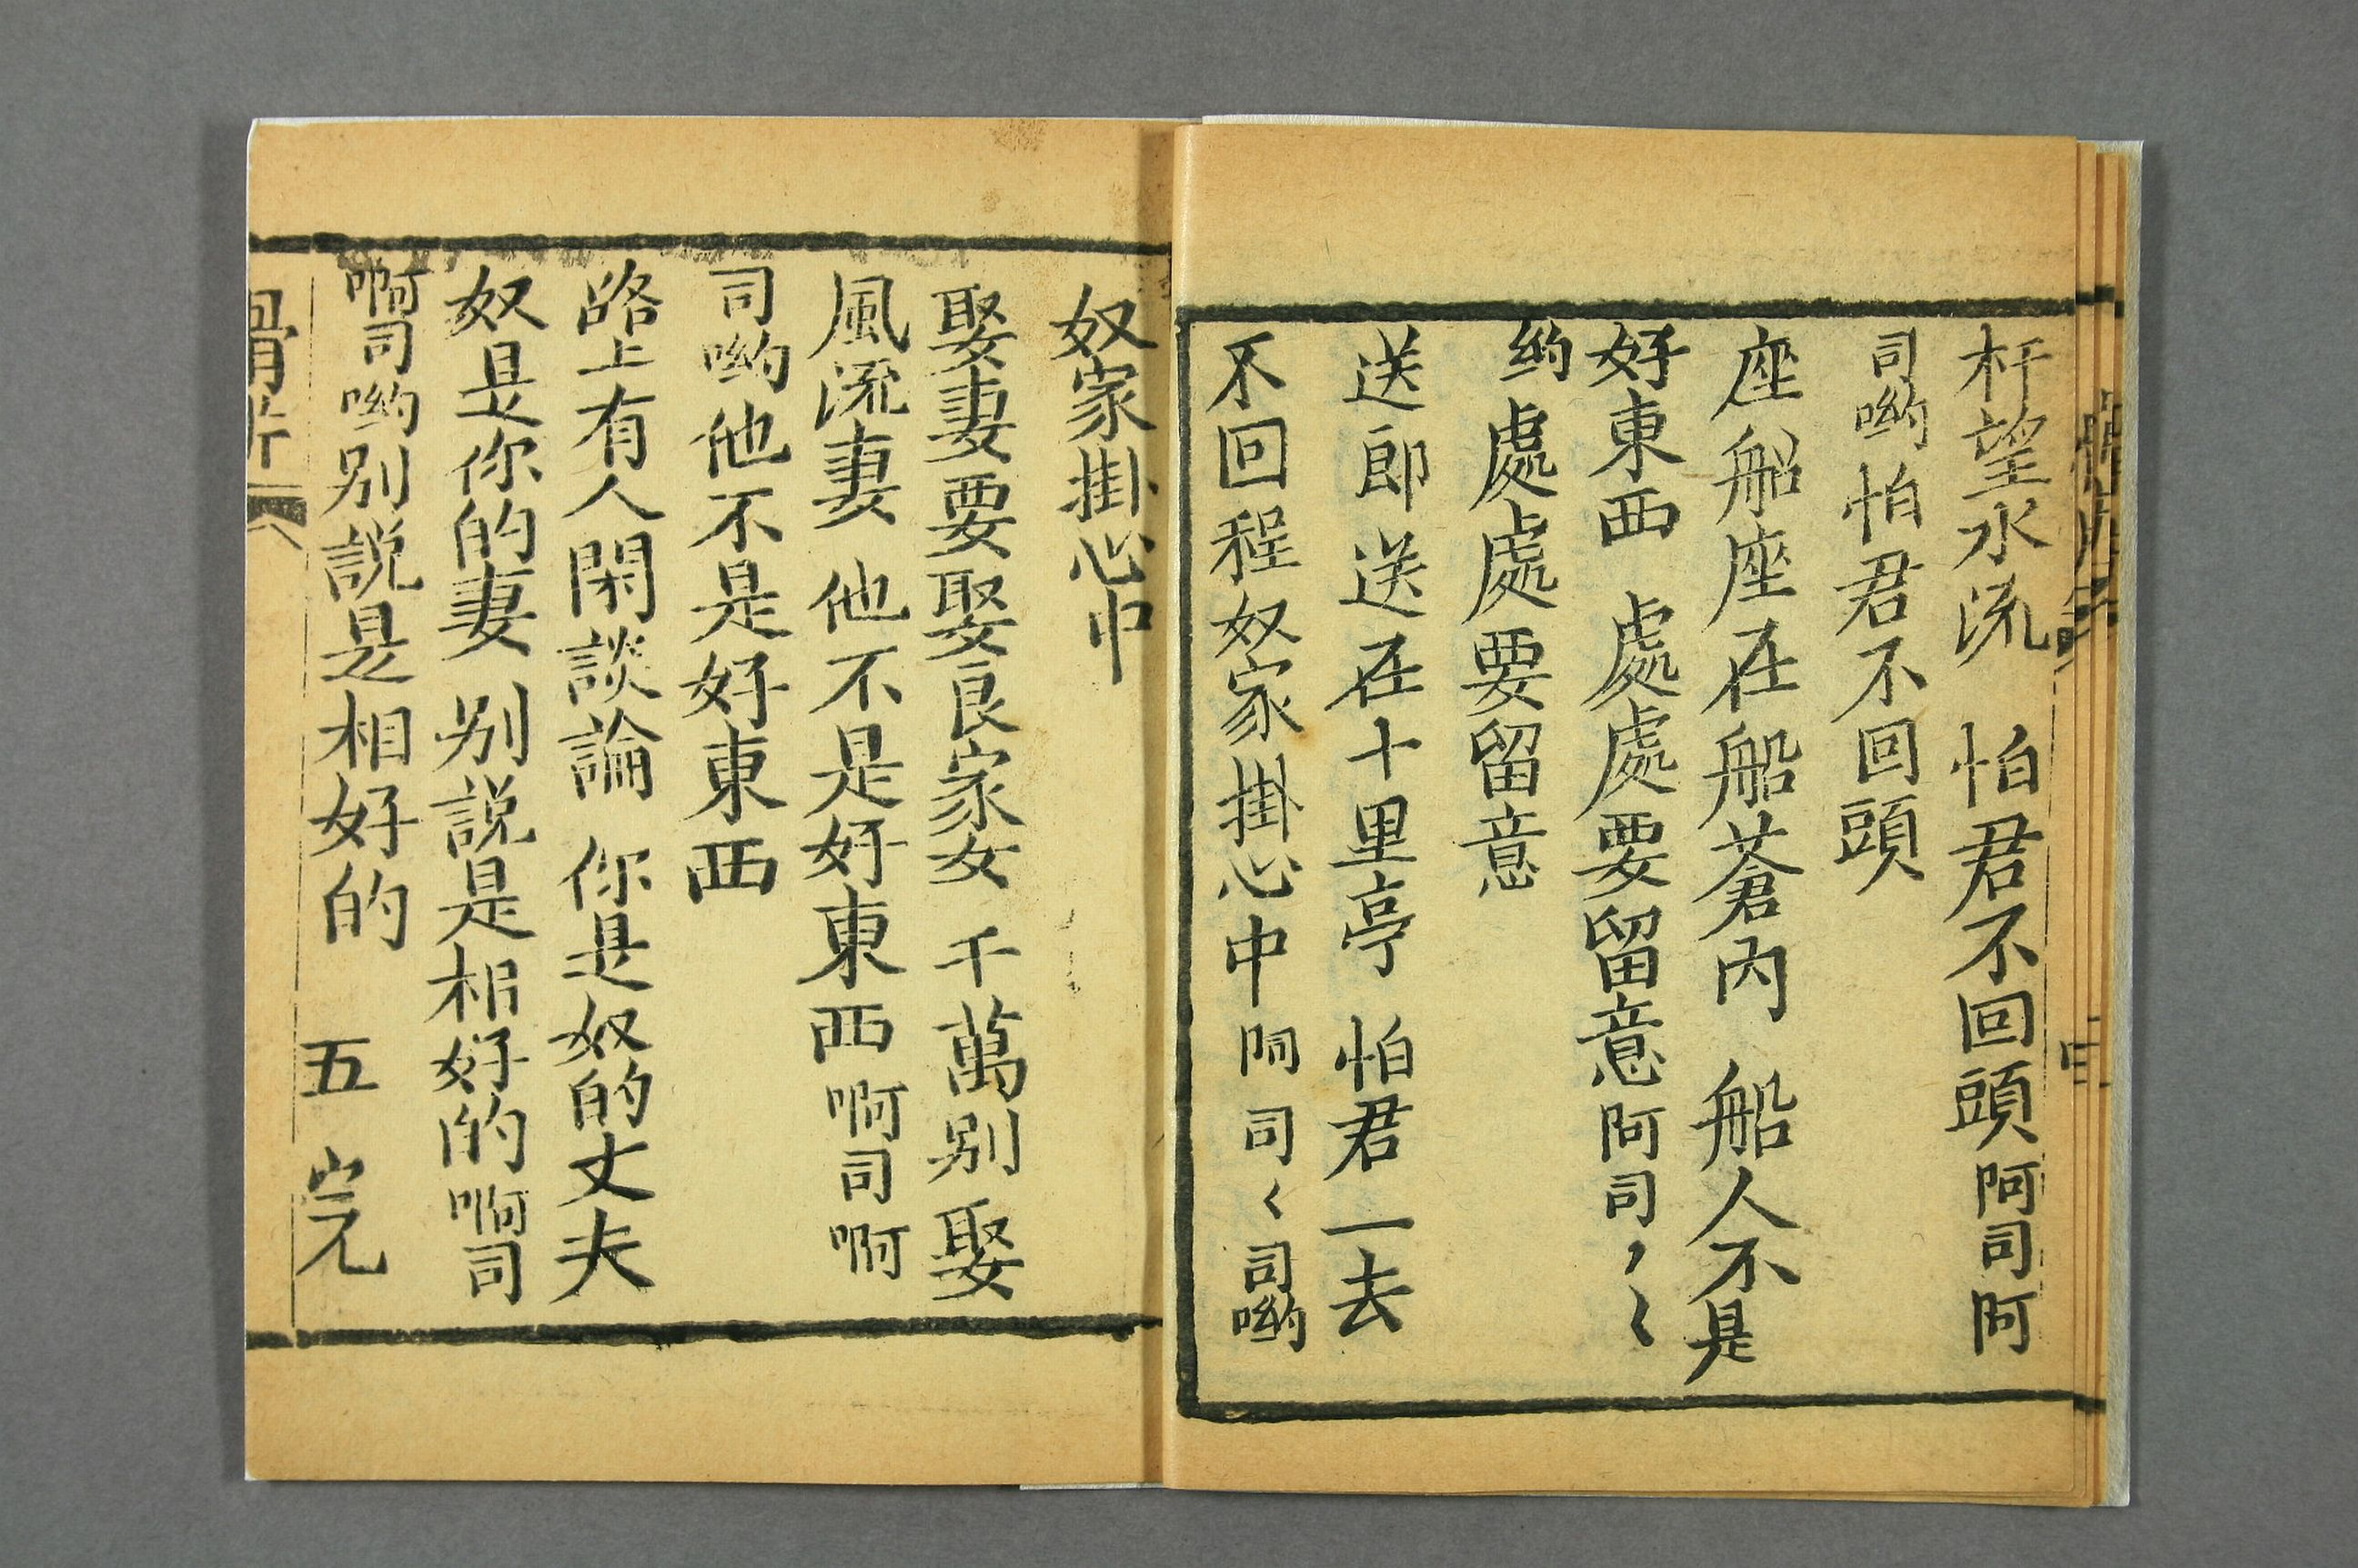 杆望水流 怕君不回頭阿司阿
司喲怕君不回頭
座船座在船蒼內 船人不是
好東西 處處要留意阿司〻〻
約 處處要留意
送郎送在十里亭 怕君一去
不回程奴家掛心中阿司〻司喲
奴家掛心中
娶妻要娶良家女 千萬别娶
風流妻 他不是好東西啊司啊
司喲他不是好東西
路上有人閑談論 你是奴的丈夫
奴是你的妻 别説是相好的啊司
啊司喲别説是相好的 五 完